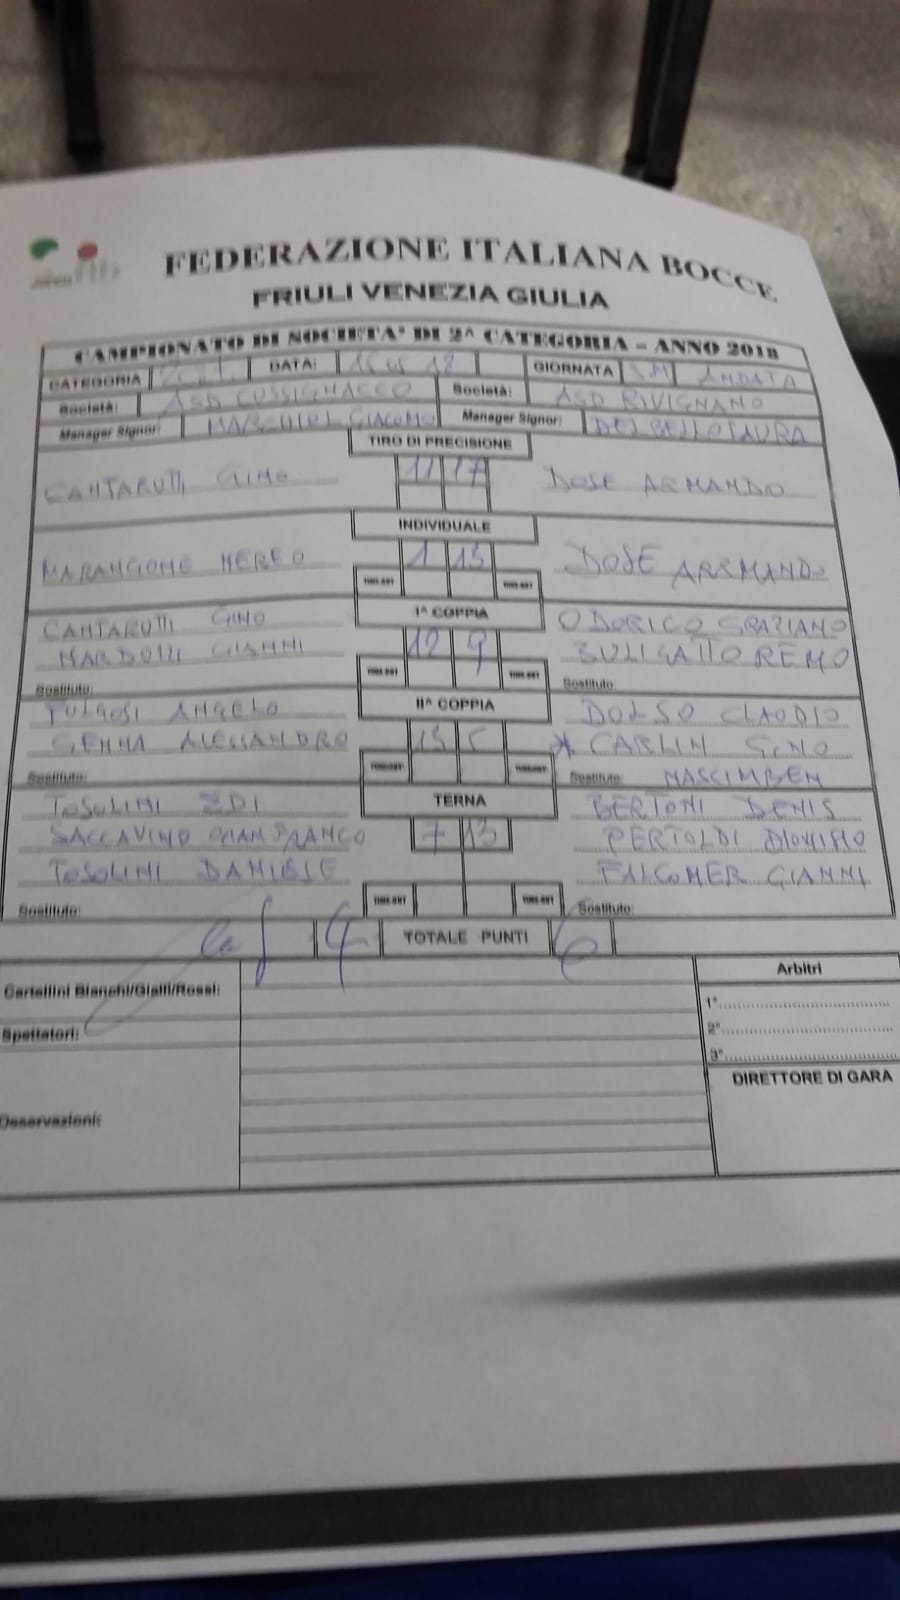 FEDERAZIONE ITALIANA BOCCE
FRIULI VENEZIA GIULIA
CAMPIONATO DI SOCIETA' DI 2^ CATEGORIA – ANNO 2018
CATEGORIA DATA: GIORNATA ANDATA
Società: ASD CUSSIGNACCO Società: ASD RIVIGNANO
Manager Signor: GIACOMO Manager Signor: DEL BELLO LAURA
TIRO DI PRECISIONE
CANTARUTTI GINO 11 17 DOSE ARMANDO
INDIVIDUALE
MARANGONE NEREO 1 13 DOSE ARMANDO
TIME-OUT TIME-OUT
Iª COPPIA
CANTARUTTI GINO ODORICO GRAZIANO
GIANNI 12 9 BULIGATTO REMO
TIME-OUT TIME-OUT
Sostituto: Sostituto:
IIª COPPIA
FULGOSI ANGELO DOLSO CLAUDIO
GENNA ALESSANDRO 13 5 * CARLIN GINO
TIME-OUT TIME-OUT
Sostituto: Sostituto: NASCIMBEN
TERNA
TOSOLINI EDI BERTONI DENIS
SACCAVINO GIANFRANCO 7 13 PERTOLDI DIONISIO
TOSOLINI DANIELE FALCOMER GIANNI
TIME-OUT TIME-OUT
Sostituto: Sostituto:
4 TOTALE PUNTI 6
Cartellini Bianchi/Gialli/Rossi:
Spettatori:
Osservazioni:
Arbitri
1°
2°
3°
DIRETTORE DI GARA